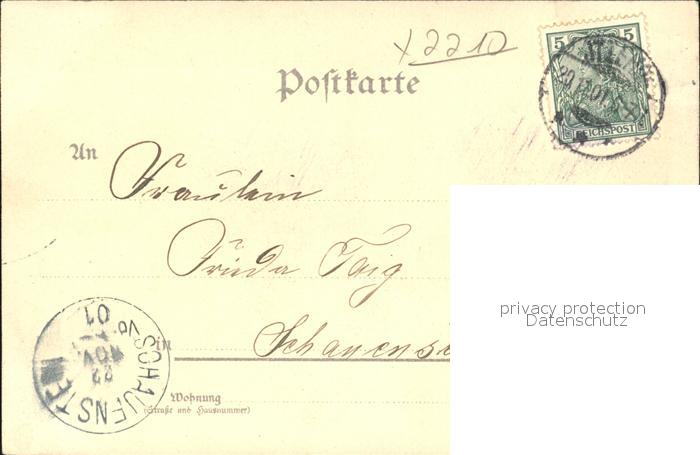 x 2210
5 5
REICHSPOST
Postkarte
An
Fräulein
Frida Taig
privacy protection
Datenschutz
in Schauens
SCHAUENSTEIN
22 NOV 01
Wohnung
(Straße und Hausnummer)